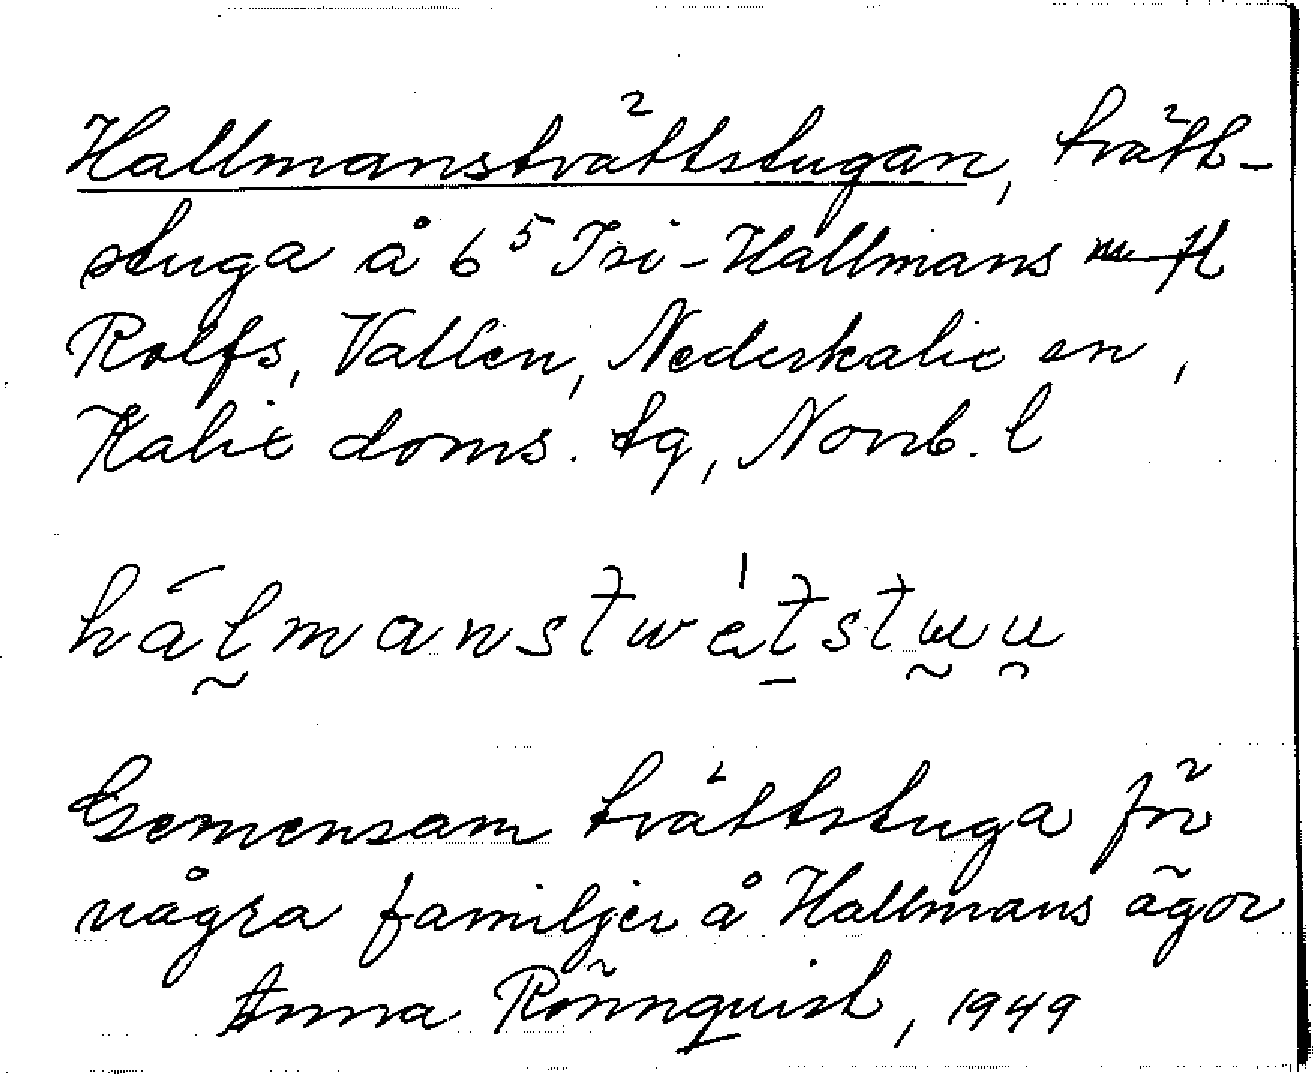 Hallmanstvättstugan, tvätt-
stuga å 6⁵ Isi-Hallmans
Rolfs, Vallen, Nederkalix sn,
Kalix doms. tg, Norrb. l
Gemensam tvättstuga för
några familjer å Hallmans ägor
Anna Rönnquist, 1949